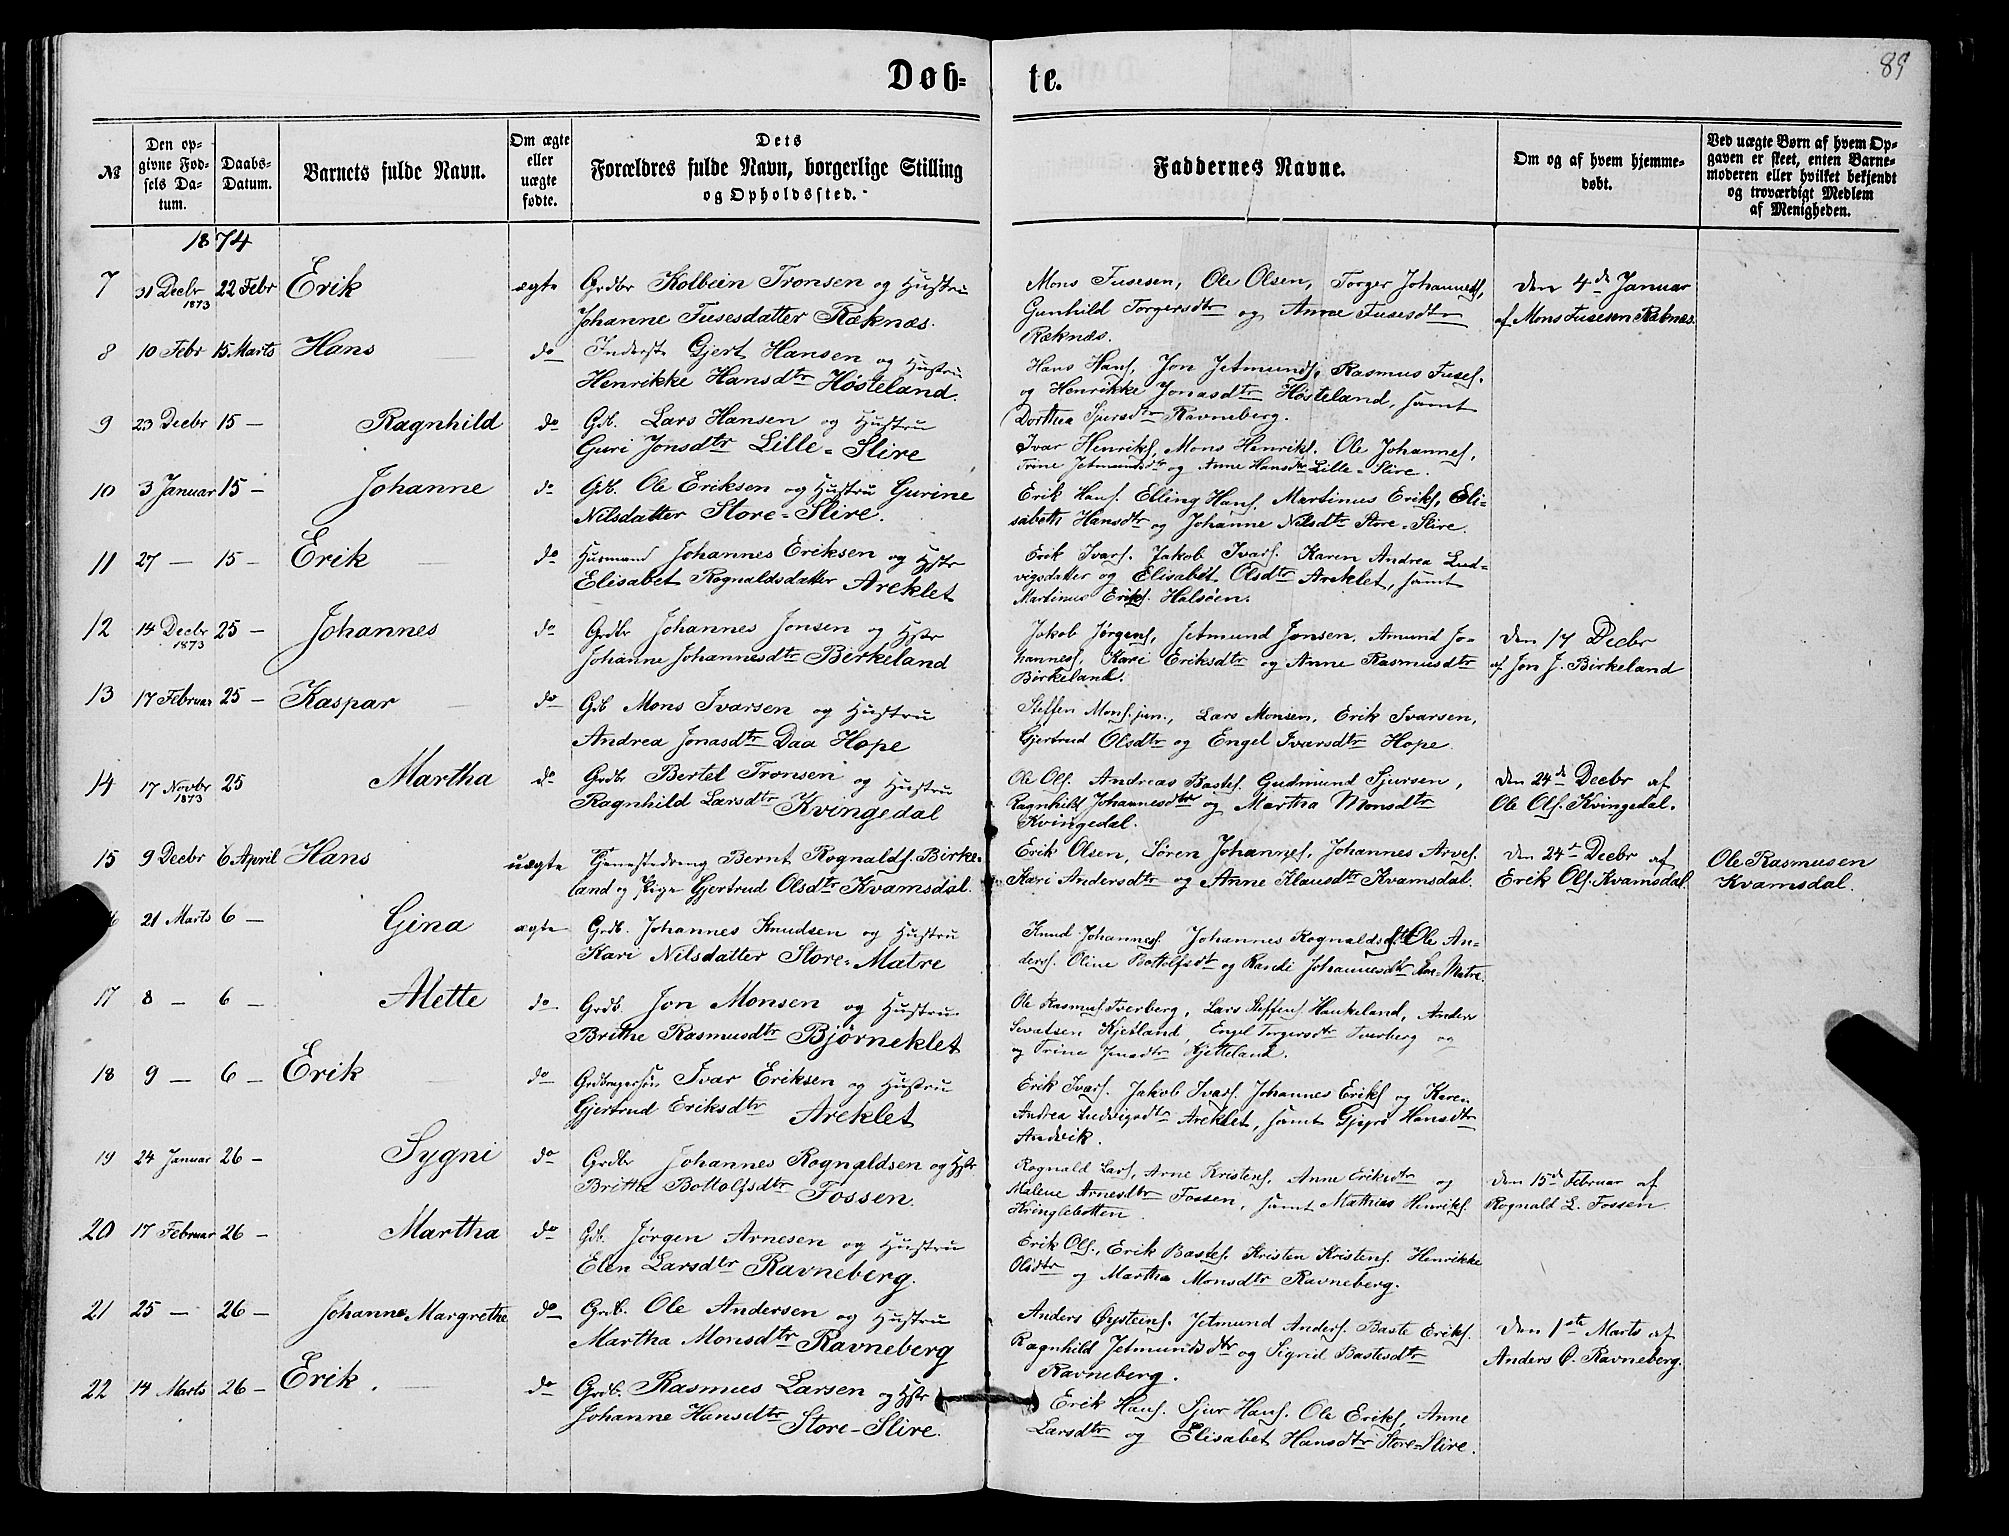 Døb-
te.
89
№
Den op-
givne Fød-
sels Da-
tum.
Daabs-
Datum.
Barnets fulde Navn.
Om ægte
eller
uægte
fødte.
Dets
Forældres fulde Navn, borgerlige Stilling
og Opholdssted.
Faddernes Navne.
Om og af hvem hjemme-
døbt.
Ved uægte Børn af hvem Op-
gaven er skeet, enten Barne-
moderen eller hvilket bekjendt
og troværdigt Medlem
af Menigheden.
1874
7 31 Decbr 1873 22 Febr Erik ægte Grdbr Kolbein Tronsen og Hustru
Johanne Fusesdatter Ræknæs.
Mons Fusesen, Ole Olsen, Torger Johannes,
Gunhild Torgersdtr og Anne Fusesdtr
Ræknæs.
Den 4de Januar
af Mons Fusesen Ræknæs.
8 10 Febr 15 Marts Hans do Inderste Gjert Hansen og Hustru
Henrikke Hansdtr Høsteland.
Hans Hans, Jon Jetmunds, Rasmus Fuses.
og Henrikke Jonasdtr Høsteland, samt
Dorthea Sjursdtr Ravneberg.
9 23 Decbr 15 — Ragnhild do Gdb. Lars Hansen og Hustru
Guri Jonsdtr Lille-Slire
Ivar Henriks, Mons Henriks. Ole Johannes,
Trine Jetmundsdtr og Anne Hansdtr Lille-Slire.
10 3 Januar 15 — Johanne do Gdb. Ole Eriksen og Hustru Gurine
Nilsdatter Store-Slire.
Erik Hans. Elling Hans. Martinus Eriks, Eli-
sabeth Hansdtr og Johanne Nilsdtr Store-Slire.
11 27 — 15 — Erik do Husmand Johannes Eriksen og Hstr
Elisabet Rognaldsdatter Areklet
Erik Ivars. Jakob Ivars. Karen Andrea Lud-
vigsdatter og Elisabet Olsdtr Areklet, samt
Martinus Eriks. Halsöen.
12 14 Decbr 1873 25 — Johannes do Grdbr Johannes Jonsen og Hstr
Johanne Johannesdtr Birkeland
Jakob Jørgens, Jetmund Jonsen, Amund Jo-
hannes, Kari Eriksdtr og Anne Rasmusdtr
Birkeland.
Den 17 Decbr
af Jon J. Birkeland
13 17 Februar 25 — Kaspar do Gdb Mons Ivarsen og Hustru
Andrea Jonasdtr Daa Hope
Steffen Mons. jun., Lars Monsen, Erik Ivarsen,
Gjertrud Olsdtr og Engel Ivarsdtr Hope.
14 17 Novbr 1873 25 Martha do Grdbr Bertel Tronsen og Hustru
Ragnhild Larsdtr Kvingedal
Ole Ols. Andreas Bastes. Gudmund Sjursen,
Ragnhild Johannesdtr og Martha Monsdtr
Kvingedal.
Den 24de Decbr af
Ole Ols. Kvingedal.
15 9 Decbr 6 April Hans uægte Tjenestedreng Bernt Rognalds. Birke-
land og Pige Gjertrud Olsdtr Kvamsdal.
Erik Olsen, Sören Johannes, Johannes Arves.
Kari Andersdtr og Anne Klausdtr Kvamsdal.
Den 24de Decbr af
Erik Ols. Kvamsdal
Ole Rasmusen
Kvamsdal.
6 21 Marts 6 — Gina ægte Grdb. Johannes Knudsen og Hustru
Kari Nilsdatter Store-Matre
Knud Johannes. Johannes Rognalds. Ole An-
ders. Oline Bottolfsdt og Randi Johannesdtr Matre.
17 8 — 6 — Mette do Grdb. Jon Monsen og Hustru
Brithe Rasmusdtr Bjørneklet
Ole Rasmus Tverberg, Lars Steffens Haukeland, Anders
Kjetland, Engel Torgersdtr Tverberg og
og Trine Jensdtr Kjetteland.
18 9 — 6 — Erik do Grdbrugersøn Ivar Eriksen og Hustru
Gjertrud Eriksdtr Areklet
Erik Ivars. Jakob Ivars. Johannes Eriks og Karen
Andrea Ludvigsdtr Areklet, samt Hansdtr
Andvik.
19 24 Januar 26 — Sygni do Grdbr Johannes Rognaldsen og Hstr
Britha Bottolfsdtr Fossen.
Rognald Lars, Arne Kristens. Anne Eriksdtr og
Malene Arnesdtr Fossen, samt Mathias Henriks.
Kringlebotten.
Den 15de Februar af
Rognald L. Fossen
20 17 Februar 26 — Martha do Gdb. Jørgen Arnesen og Hustru
Elen Larsdtr Ravneberg.
Erik Ols., Erik Bastes. Kristen Kristens. Henrikke
Olsdtr og Martha Monsdtr Ravneberg.
21 25 — 26 — Johanne Margrethe do Grdb. Ole Andersen og Hustru
Martha Monsdtr Ravneberg
Anders Øysteins. Jetmund Anders. Baste Eriks.
Ragnhild Jetmundsdtr og Sigrid Bastesdtr
Ravneberg.
Den 1ste Marts af
Anders Ø. Ravneberg.
22 14 Marts 26 — Erik do Grdb. Rasmus Larsen og Hstr
Johanne Hansdtr Store-Slire.
Erik Hans. Sjur Hans. Ole Eriks, Anne
Larsdtr og Elisabet Hansdtr Store-Slire.